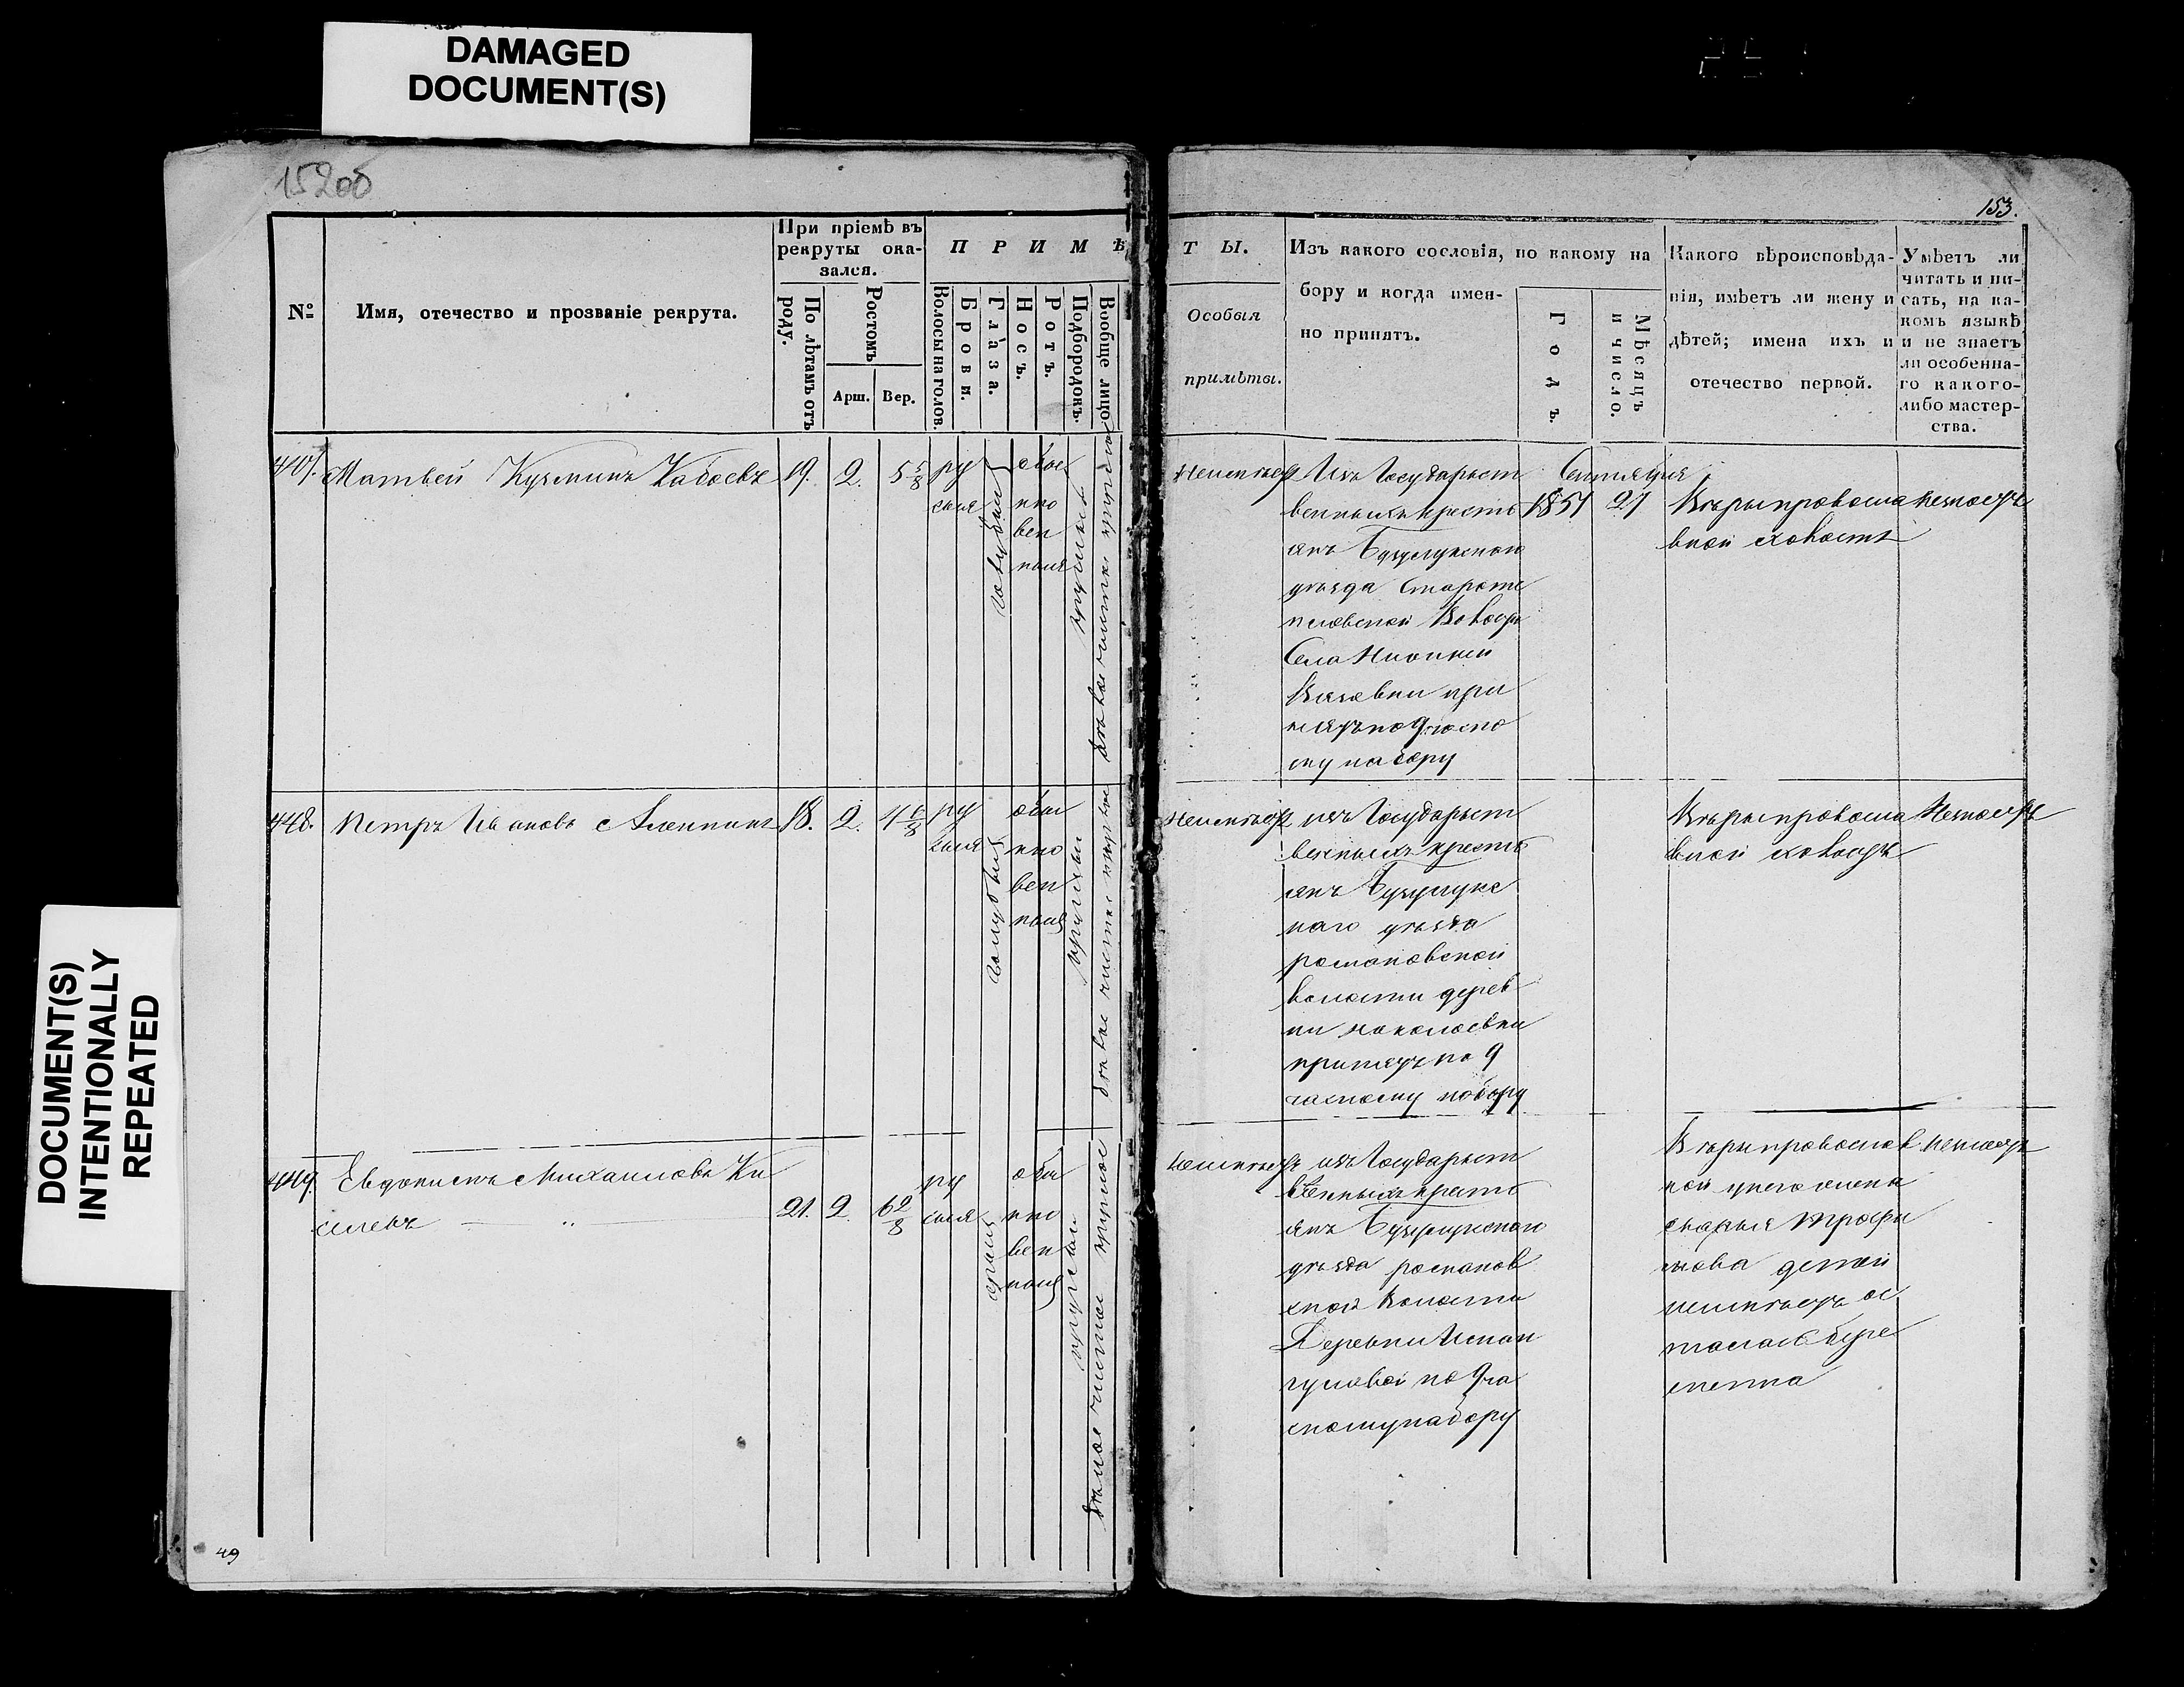 DAMAGED
DOCUMENT(S)
DOCUMENT(S)
INTENTIONALLY
REPEATED
152об
153.
№
Имя, отечество и прозваніе рекрута.
При пріемѣ въ
рекруты ока-
зался.
По лѣтамъ отъ
роду.
Ростомъ
Арш.
Вер.
ПРИМѢТЫ.
Волосы на голов.
Брови.
Глаза.
Носъ.
Ротъ.
Подбородокъ.
Вообще лицо.
Особыя
примѣты.
Изъ какого сословія, по какому на
бору и когда имен-
но принятъ.
Годъ.
Мѣсяцъ
и число.
Какого вѣроисповѣда-
нія, имѣетъ ли жену и
дѣтей; имена ихъ и
отечество первой.
Умѣетъ ли
читать и пи-
сать, на ка-
комъ языкѣ
и не знаетъ
ли особенна-
го какого-
либо мастер-
ства.
Матвей Кузминъ
19. 2. 5 5/8
ру
сыя
голубыя
обык
но
вен
ныя
круглой
бѣлое чистое круглое
Неимѣетъ
Изъ Государст
венныхъ кресть
янъ Бузулукского
уѣзда
Села
при
нятъ по 9
му набору
Сентября
1851 21
Вѣры православ
ной холостъ
448. Петръ Ивановъ
18. 2. 4 6/8
ру
сыя
голубыя
обык
но
вен
ныя
круглый
бѣлое чистое круглое
Неимѣетъ
изъ Государст
венныхъ кресть
янъ Бузулукс
каго уѣзда
романовской
волости дерев
ни
принятъ по 9
частному набору
Вѣры православ
ной холостъ
449. Евдокимъ Михаиловъ Ки
селевъ
21. 2. 6 2/8
ру
сыя
сѣрыя
обык
но
вен
ныя
круглый
бѣлое чистое круглое
Неимѣетъ
изъ Государст
венныхъ кресть
янъ Бузулукского
уѣзда романов
ской Волости
Деревни
по 9 ча
стному набору
Вѣры православ
ной у него жена
Марья Трофи
мова детей
неимѣетъ ос
талась бере
менна
49